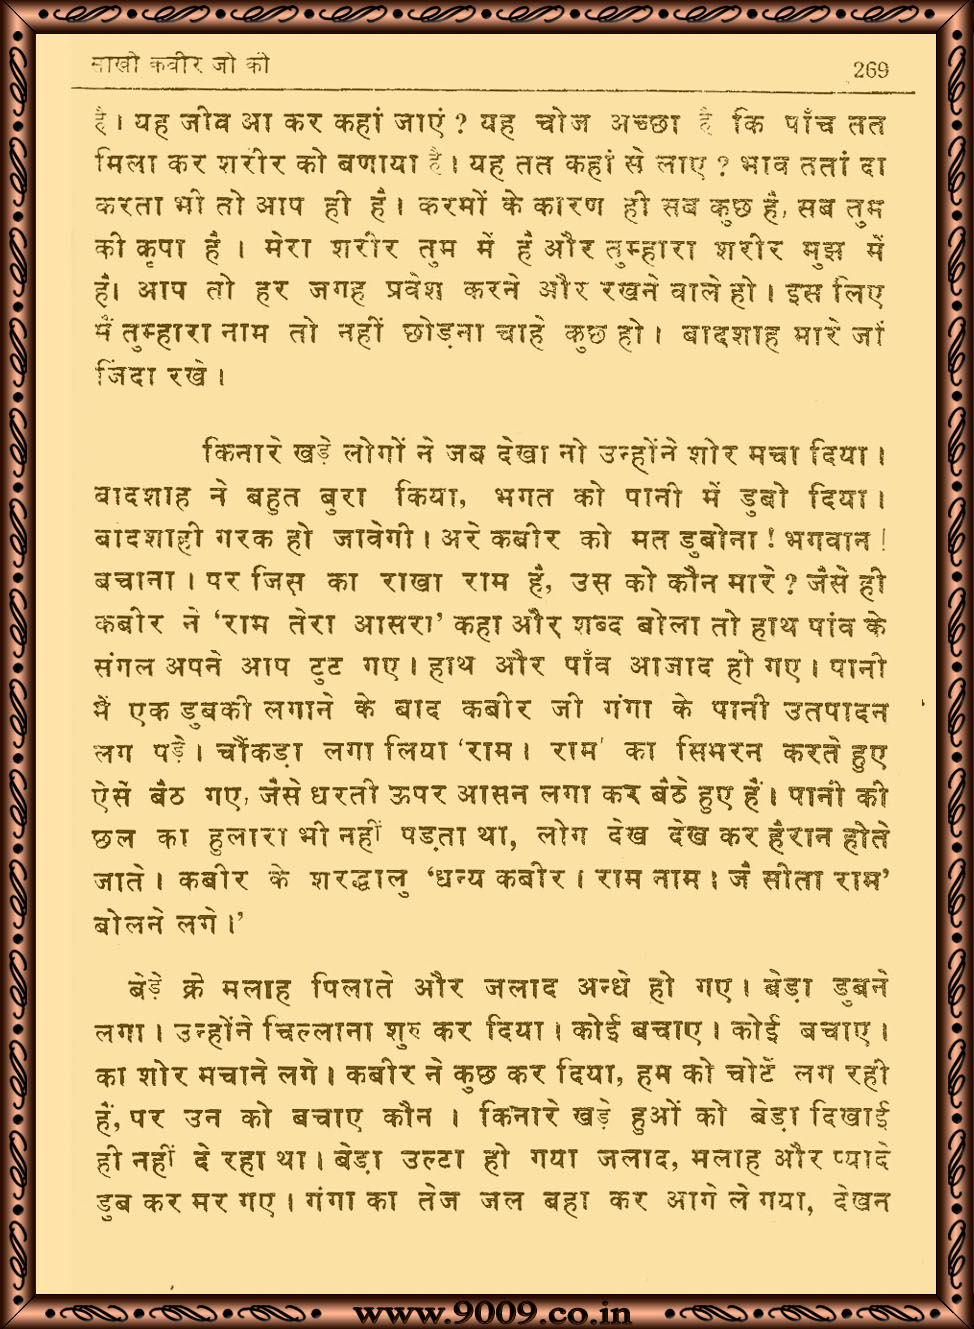 साखी कबीर जी की
269
है। यह जीव आ कर कहां जाएं ? यह चोज अच्छा है कि पाँच तत
मिला कर शरीर को बणाया है। यह तत कहां से लाए ? भाव ततां दा
करता भी तो आप ही हैं। करमों के कारण ही सब कुछ है, सब तुम
की कृपा है । मेरा शरीर तुम में है और तुम्हारा शरीर मुझ में
है। आप तो हर जगह प्रवेश करने और रखने वाले हो। इस लिए
मैं तुम्हारा नाम तो नहीं छोड़ना चाहे कुछ हो। बादशाह मारे जां
जिंदा रखे।
किनारे खड़े लोगों ने जब देखा नो उन्होंने शोर मचा दिया।
बादशाह ने बहुत बुरा किया, भगत को पानी में डुबो दिया।
बादशाही गरक हो जावेगी। अरे कबीर को मत डुबोना ! भगवान !
बचाना । पर जिस का राखा राम है, उस को कौन मारे ? जैसे ही
कबीर ने ‘राम तेरा आसरा’ कहा और शब्द बोला तो हाथ पांव के
संगल अपने आप टुट गए। हाथ और पाँव आजाद हो गए। पानी
में एक डुबकी लगाने के बाद कबीर जी गंगा के पानी उतपादन
लग पड़े। चौंकड़ा लगा लिया ‘राम। राम’ का सिमरन करते हुए
ऐसें बैठ गए, जैसे धरती ऊपर आसन लगा कर बैठे हुए हैं। पानी की
छल का हुलारा भी नहीं पड़ता था, लोग देख देख कर हैरान होते
जाते । कबीर के शरद्धालु ‘धन्य कबीर । राम नाम । जै सीता राम’
बोलने लगे।’
बेड़े के मलाह पिलाते और जलाद अन्धे हो गए। बेड़ा डुबने
लगा। उन्होंने चिल्लाना शुरु कर दिया। कोई बचाए। कोई बचाए।
का शोर मचाने लगे। कबीर ने कुछ कर दिया, हम को चोटें लग रही
हैं, पर उन को बचाए कौन । किनारे खड़े हुओं को बेड़ा दिखाई
ही नहीं दे रहा था। बेड़ा उल्टा हो गया जलाद, मलाह और प्यादे
डुब कर मर गए। गंगा का तेज जल बहा कर आगे ले गया, देखन
www.9009.co.in